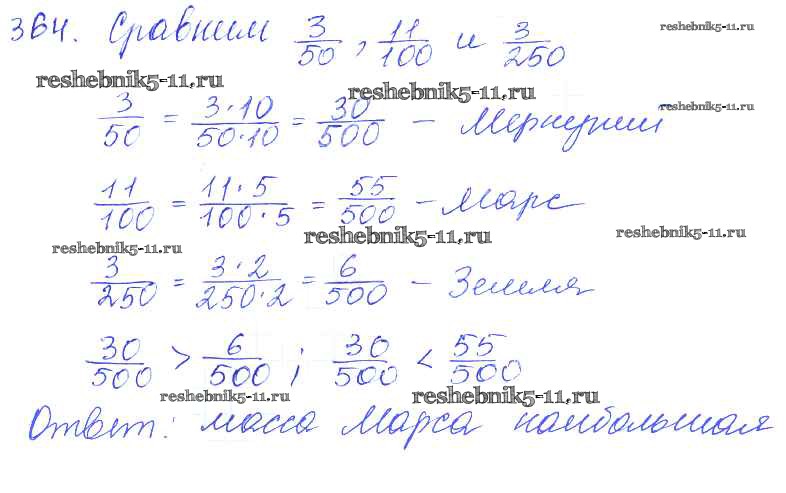 364. Сравним 3/50, 11/100 и 3/250
reshebnik5-11.ru
reshebnik5-11.ru
reshebnik5-11.ru
3/50 = 3·10/50·10 = 30/500 – Меркурий
reshebnik5-11.ru
11/100 = 11·5/100·5 = 55/500 – Марс
reshebnik5-11.ru
reshebnik5-11.ru
reshebnik5-11.ru
3/250 = 3·2/250·2 = 6/500 – Земля
30/500 > 6/500 ; 30/500 < 55/500
reshebnik5-11.ru
reshebnik5-11.ru
Ответ: масса Марса наибольшая